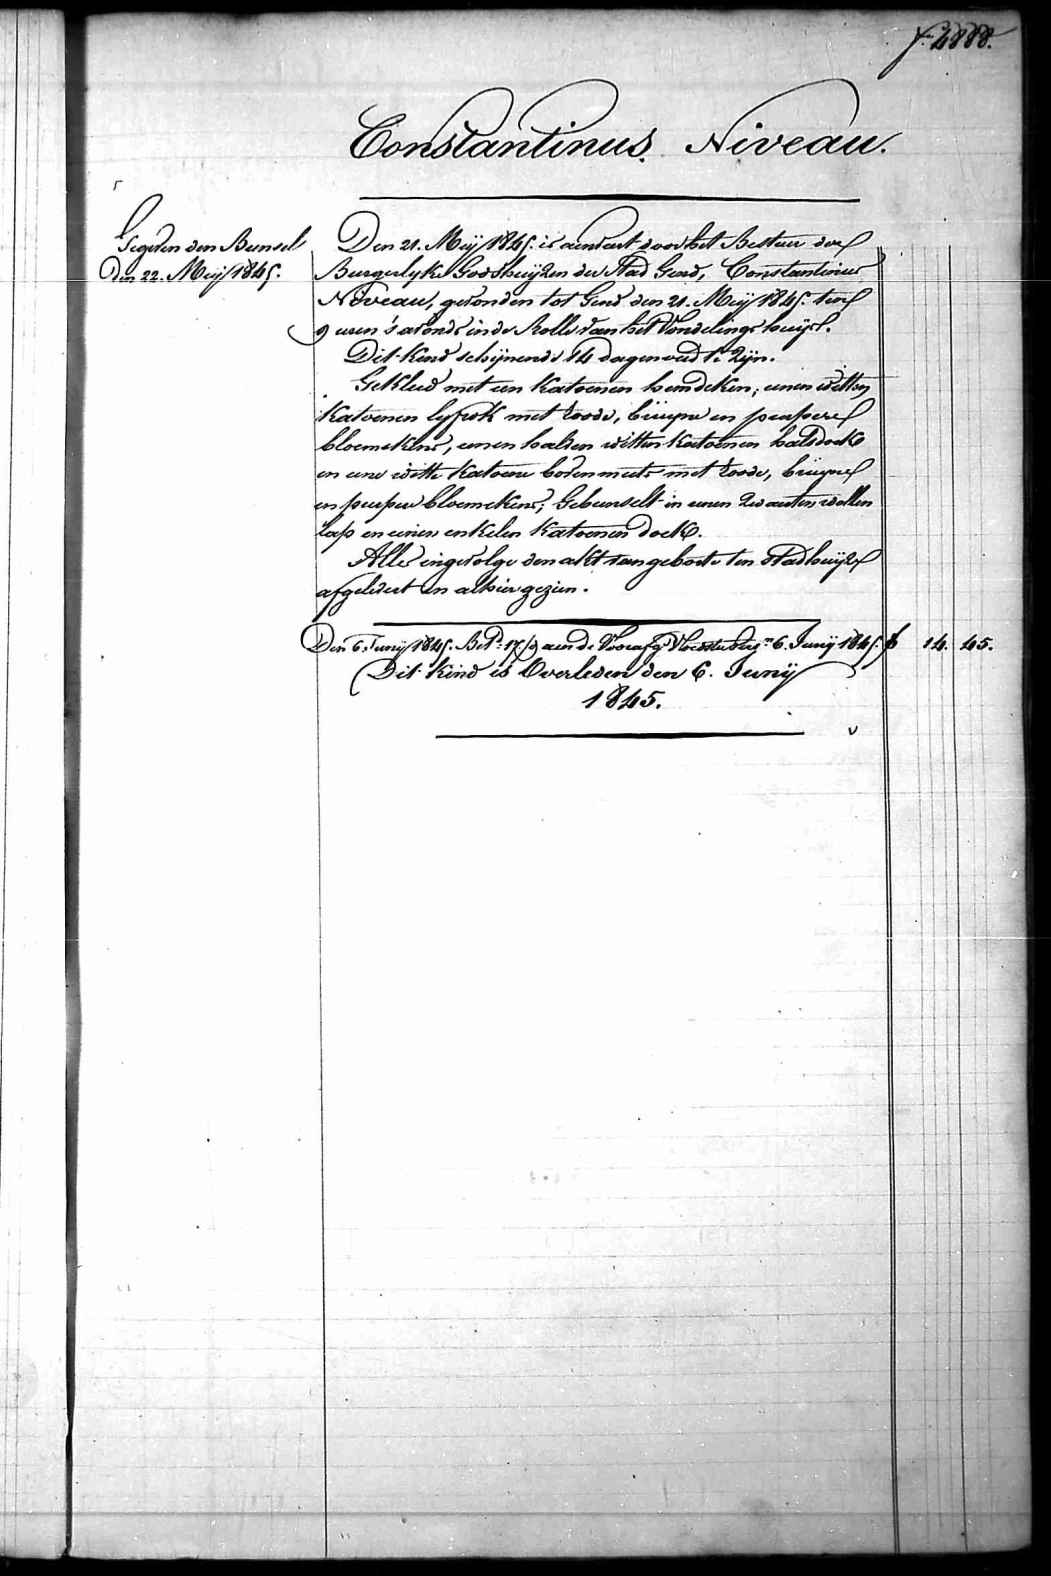 f. 2888.
Constantinus Niveau.
Gegeven den Bunsel
den 22. Meij 1845.
Den 21. Meij 1845. is aenveert door het Bestuer der
Burgerlyke Godshuijzen der Stad Gend, Constantinus
Niveau, gevonden tot Gend den 21. Meij 1845. ten
9 uren 's avonds in de Rolle van het Vondelings huijs.
Dit Kind schijnende 14 dagen oud te zijn.
Gekleed met een katoenen hemdeken, eenen witten
katoenen lyfrok met roode, bruijne en peirpere
bloemekens, eenen halven witten katoenen halsdoek
en eene witte katoene bovenmuts met roode, bruijne
en peirper bloemekens; Gebunselt in eenen zwarten wollen
lap en eenen enkelen katoenen doek.
Alles ingevolge den akt van geboorte ten Stadhuijze
afgelevert en alhier gezien.
Den 6. Junij 1845. Bet. 17. aen de Voorafg. Voedster 6. Junij 1845. f 14. 45.
Dit kind is Overleden den 6. Junij
1845.